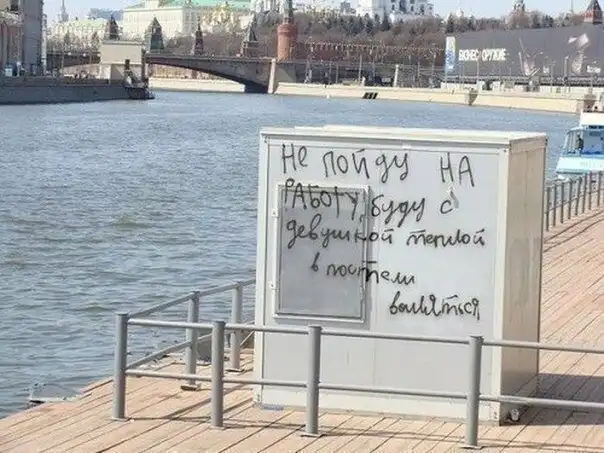 БИЗНЕС-ОРУЖИЕ
Не пойду на
работу, буду с
девушкой теплой
в постели
валяться